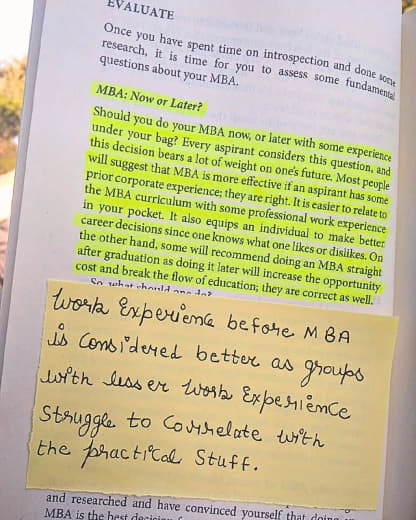 EVALUATE
Once you have spent time on introspection and done some
research, it is time for you to assess some fundamental
questions about your MBA.
MBA: Now or Later?
Should you do your MBA now, or later with some experience
under your bag? Every aspirant considers this question, and
this decision bears a lot of weight on one's future. Most people
will suggest that MBA is more effective if an aspirant has some
prior corporate experience; they are right. It is easier to relate to
the MBA curriculum with some professional work experience
in your pocket. It also equips an individual to make better
career decisions since one knows what one likes or dislikes. On
the other hand, some will recommend doing an MBA straight
after graduation as doing it later will increase the opportunity
cost and break the flow of education; they are correct as well.
So, what should one do?
Work Experience before MBA
is Considered better as groups
with lesser work Experience
Struggle to Correlate with
the practical Stuff.
and researched and have convinced yourself that doing
MBA is the best